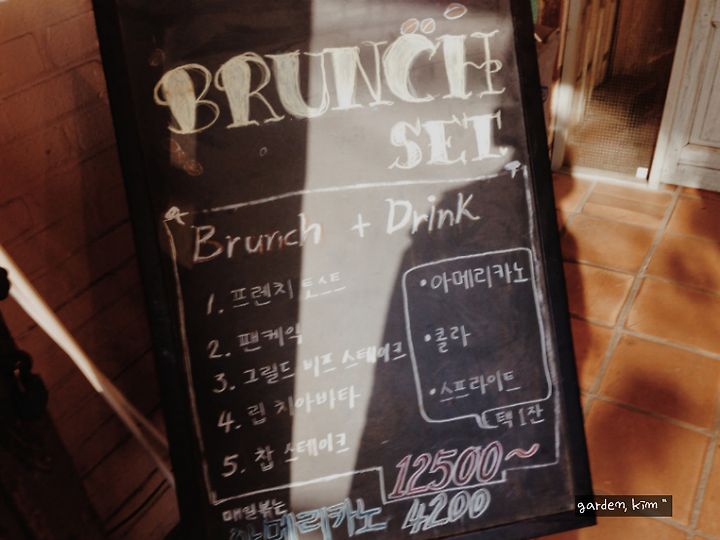 BRUNCH
SET
Brunch + Drink
1. 프렌치 토스트
2. 팬케익
3. 그릴드 비프 스테이크
4. 립 치아바타
5. 찹 스테이크
•아메리카노
•콜라
•스프라이트
택 1잔
12500~
매일볶는
아메리카노 4200
garden, kim"